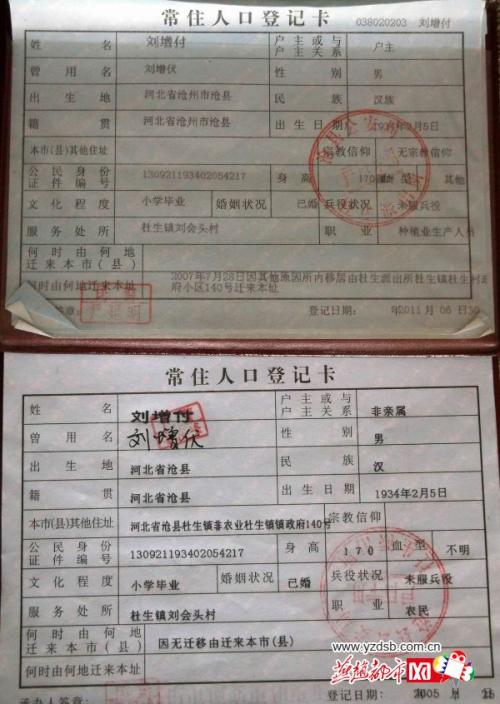 常住人口登记卡
038020203 刘增付
姓名 刘增付 户主或与户主关系 户主
曾用名 刘增伏 性别 男
出生地 河北省沧州市沧县 民族 汉族
籍贯 河北省沧州市沧县 出生日期 1934年2月5日
本市(县)其他住址 宗教信仰 无宗教信仰
公民身份证件编号 130921193402054217 身高 170 血型 其他
文化程度 小学毕业 婚姻状况 已婚 兵役状况 未服兵役
服务处所 杜生镇刘会头村 职业 种植业生产人员
何时由何地迁来本市(县)
何时由何地迁来本址 2007年7月28日因其他原因所内移居由杜生派出所杜生镇杜生村政府小区140号迁来本址
登记日期: 2011年06月30
常住人口登记卡
姓名 刘增付 户主或与户主关系 非亲属
曾用名 刘增伏 性别 男
出生地 河北省沧县 民族 汉
籍贯 河北省沧县 出生日期 1934年2月5日
本市(县)其他住址 河北省沧县杜生镇非农业杜生镇镇政府140号 宗教信仰
公民身份证件编号 130921193402054217 身高 170 血型 不明
文化程度 小学毕业 婚姻状况 已婚 兵役状况 未服兵役
服务处所 杜生镇刘会头村 职业 农民
何时由何地迁来本市(县) 因无迁移由迁来本市(县)
何时由何地迁来本址
承办人签章: 登记日期: 2005年月日
www.yzdsb.com.cn
燕赵都市网